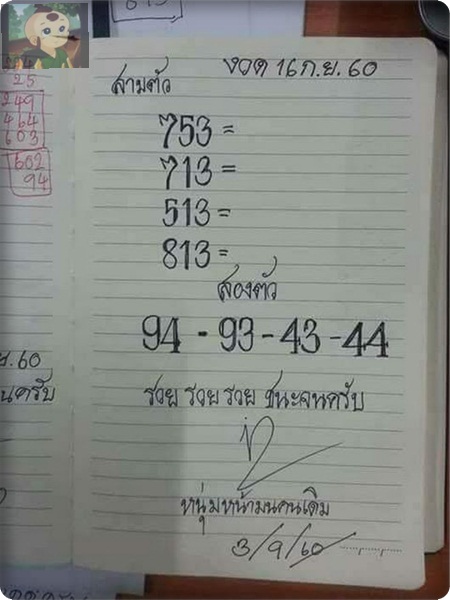 งวด 16 ก.ย. 60
สามตัว
753 =
713 =
513 =
813 =
สองตัว
94 - 93 - 43 - 44
รวย รวย รวย ชนะจนครับ
หนุ่มหน้ามนคนเดิม
3/9/60
25
249
464
603
602
94
.ย. 60
นครับ